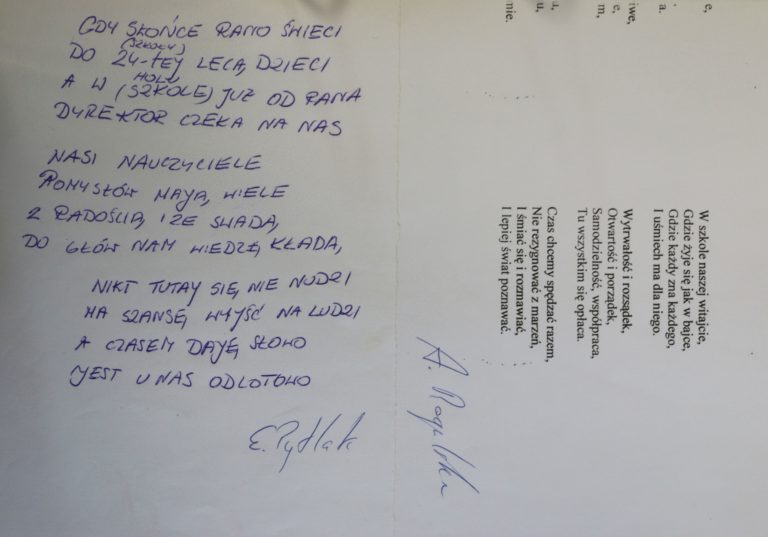 GDY SŁOŃCE RANO ŚWIECI
(SZKOŁY)
DO 24-TEJ LECĄ DZIECI
HOLU
A W (SZKOLE) JUŻ OD RANA
DYREKTOR CZEKA NA NAS
NASI NAUCZYCIELE
POMYSŁÓW MAJĄ WIELE
Z RADOŚCIĄ I ZE SWADĄ
DO GŁÓW NAM WIEDZĘ KŁADĄ
NIKT TUTAJ SIĘ NIE NUDZI
MA SZANSĘ WYJŚĆ NA LUDZI
A CZASEM DAJĘ SŁOWO
JEST U NAS ODLOTOWO
E. Pytlak
W szkole naszej witajcie,
Gdzie żyje się jak w bajce,
Gdzie każdy zna każdego,
I uśmiech ma dla niego.
Wytrwałość i rozsądek,
Otwartość i porządek,
Samodzielność, współpraca,
Tu wszystkim się opłaca.
Czas chcemy spędzać razem,
Nie rezygnować z marzeń,
I śmiać się i rozmawiać,
I lepiej świat poznawać.
e,
a.
iwe,
e,
m,
u,
u,
nie.
A. Rogulska